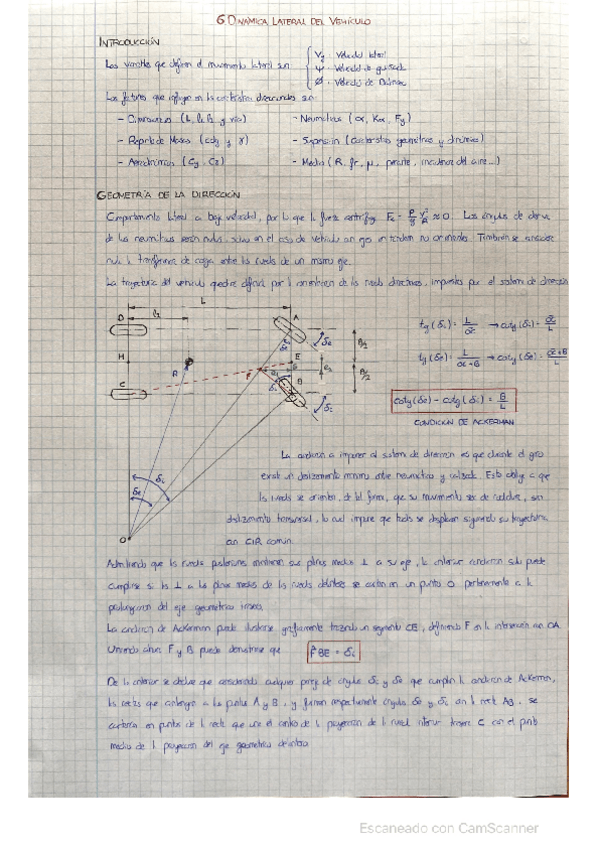 6. DINÁMICA LATERAL DEL VEHÍCULO
INTRODUCCIÓN
Las variables que definen el movimiento lateral son: Vy - Velocidad lateral
Ψ - Velocidad de guiñada
Ø - Velocidad de Balanceo
Los factores que influyen en las características direccionales son:
- Dimensiones (L, l1, l2 y vía) - Neumáticos (α, Kα, Fy)
- Reparto de Masas (cdg y γ) - Suspensión (Características geométricas y dinámicas)
- Aerodinámicas (Cy, Cz) - Medio (R, fr, μ, pendiente, incidencia del aire...)
GEOMETRÍA DE LA DIRECCIÓN
Comportamiento lateral a baja velocidad, por lo que la fuerza centrífuga Fc = P/g V²/R ≈ 0. Los ángulos de deriva
de los neumáticos serán nulos, salvo en el caso de vehículo con ejes en tándem no orientables. También se considera
nula la transferencia de carga entre las ruedas de un mismo eje.
La trayectoria del vehículo quedará definida por la orientación de las ruedas directrices, impuestas por el sistema de dirección
L
D l2 A δe
tg(δi) = L/x → cotg(δi) = x/L
H R F E B/2
tg(δe) = L/(x+B) → cotg(δe) = (x+B)/L
C B δi B/2
cotg(δe) - cotg(δi) = B/L
CONDICIÓN DE ACKERMAN
δi
δe
O
La condición a imponer al sistema de dirección es que durante el giro
exista un deslizamiento mínimo entre neumático y calzada. Esto obliga a que
las ruedas se orienten, de tal forma, que su movimiento sea de rodadura, sin
deslizamiento transversal, lo cual impone que todas se desplacen siguiendo su trayectoria
con CIR común.
Admitiendo que las ruedas posteriores mantienen sus planos medios ⊥ a su eje, la anterior condición solo puede
cumplirse si las ⊥ a los planos medios de las ruedas delanteras se cortan en un punto O perteneciente a la
prolongación del eje geométrico trasero.
La condición de Ackerman puede ilustrarse gráficamente trazando un segmento CE, definiendo F en la intersección con OA.
Uniendo ahora F y B puede demostrarse que FBE = δi
De lo anterior se deduce que considerando cualquier pareja de ángulos δi y δe que cumplan la condición de Ackerman,
las rectas que contengan a los puntos A y B, y formen respectivamente ángulos δe y δi con la recta AB, se
cortarán en puntos de la recta que une el centro de la proyección de la rueda interior trasera C con el punto
medio de la proyección del eje geométrico delantero.
Escaneado con CamScanner